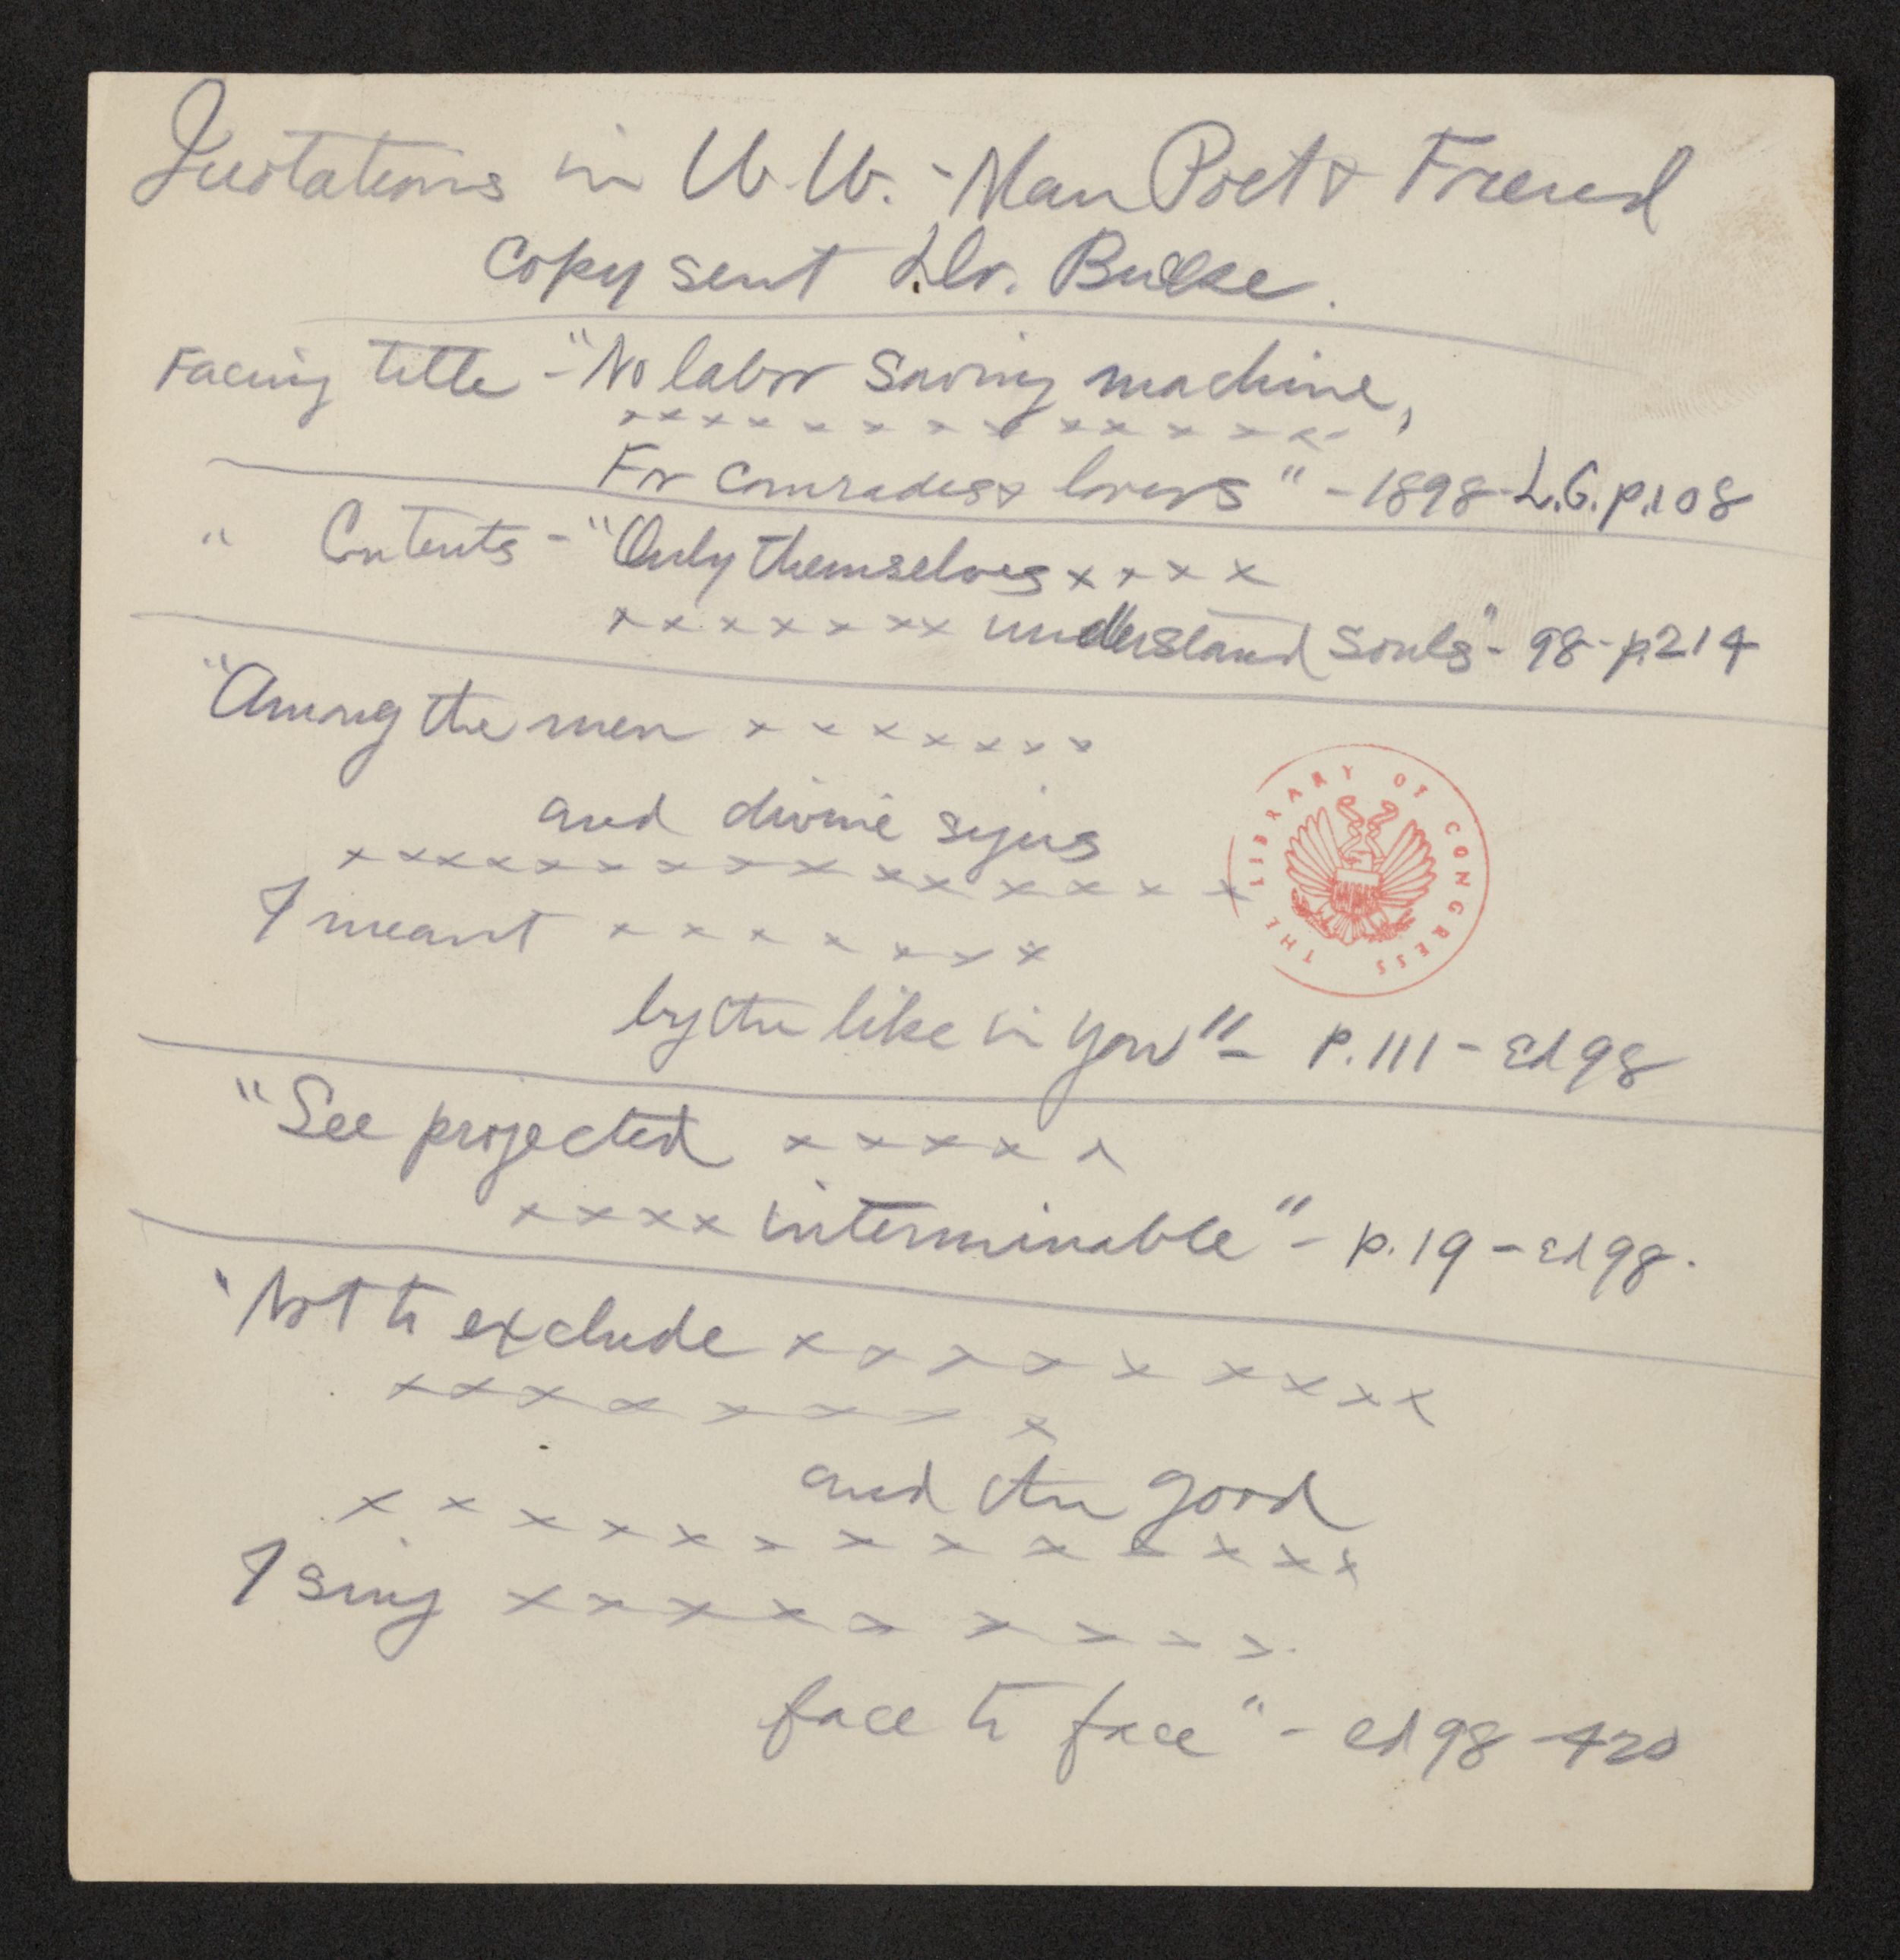 Quotations in W. W. - Man Poet & Friend
Copy sent Dr. Bucke.
Facing title - "No labor saving machine,
x x x x x x x x x x x x x
For comrades & lovers" - 1898 - L.G. p. 108
" Contents - "Only themselves x x x x
x x x x x x x x understand souls" - 98 - p. 214
"Among the men x x x x x x x
and divine signs
x x x x x x x x x x x x x x x x
I meant x x x x x x x
by the like in you" - p. 111 - Ed 98
"See projected x x x x x
x x x x interminable" - p. 19 - Ed 98.
"Not to exclude x x x x x x x x x
x x x x x x x x
and the good
x x x x x x x x x x x x x
I sing x x x x x x x x x
face to face" - ed 98 - 420
THE LIBRARY OF CONGRESS